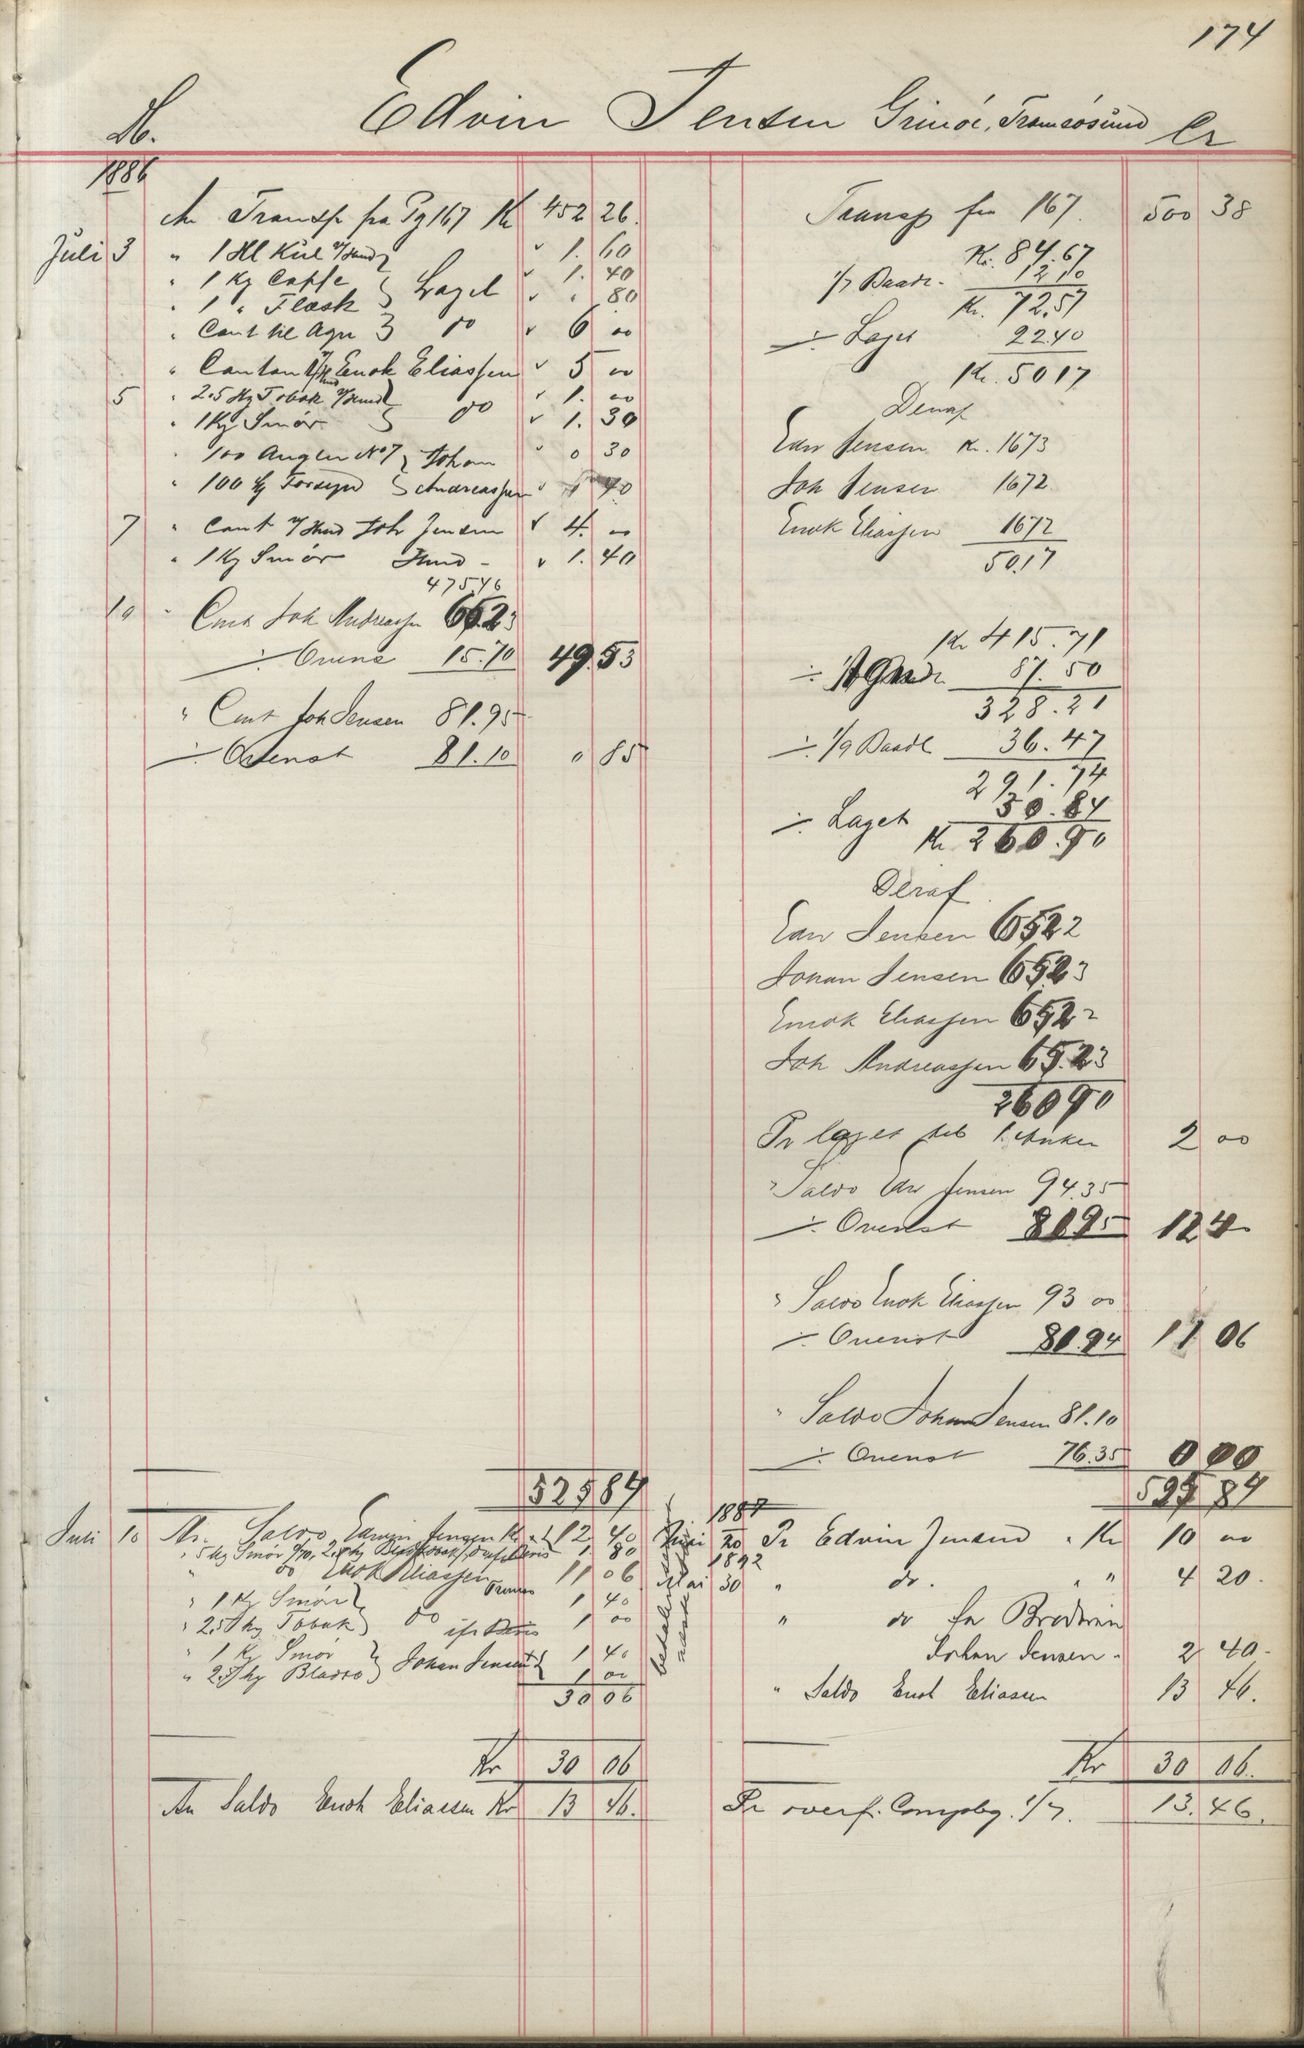 174
Edvin Jensen Grinöe, Tromsösund
Db.
Cr
1886
An Transp fra Pg 167 Kr 452 26.
Juli 3 " 1 Hl Kul 1.60
" 1 Kg Caffe Laget 1.40
" 1 " Flæsk " 80
" Cont til Agn do 6 00
" Contant Enok Eliassen 5 00
5 " 2.5 Hg Tobak 1.00
" 1 Kg Smör do 1.30
" 100 Angler No 7 Johan 0 30
" 100 Forsyn Andreassen 1 40
7 " Cont Joh Jensen 4. 00
" 1 Kg Smör 1.40
475.46
10 " Cont Joh Andreassen 65.23
÷ Ovens 15.70 49.53
" Cont Joh Jensen 81.95
÷ Ovenst 81.10 0 85
525 84
Juli 10 An Saldo Edwin Jensen Kr 12.40
1.80
" do Enok Eliassen 11 06
" 1 Kg Smör 1 40
" 2.5 hg Tobak do 1 00
" 1 Kg Smör 1 40
" 2.5 hg Bladto Johan Jensen 1 00
30 06
Kr 30 06
An Saldo Enok Eliassen Kr 13 46.
Transp fra 167. 500 38
Kr. 84.67
1/7 Baadl. 12.10
Kr. 72.57
÷ Laget 22.40
Kr. 50.17
Deraf
Edv Jensen Kr. 16.73
Joh Jensen 16.72
Enok Eliassen 16.72
50.17
Kr 415.71
÷ Agn 87.50
328.21
÷ 1/9 Baadl 36.47
291.74
÷ Laget 30.84
Kr 260.90
Deraf
Edv Jensen 65.22
Johan Jensen 65.23
Enok Eliassen 65.22
Joh Andreassen 65.23
260.90
Pr laget 1 Anker 2 00
" Saldo Edv Jensen 94.35
÷ Ovenst 81.95 12 40
" Saldo Enok Eliassen 93 00
÷ Ovenst 81.94 11 06
" Saldo Johan Jensen 81.10
÷ Ovenst 76.35 0 00
525 84
1887
20 Pr Edvin Jensen " Kr 10 00
1892
Mai 30 " do. " " 4 20.
" do fra Broderen
Johan Jensen. 2 40.
" Saldo Enok Eliassen 13 46.
Kr 30 06.
Pr overf. Compbg. 1/7. 13.46.